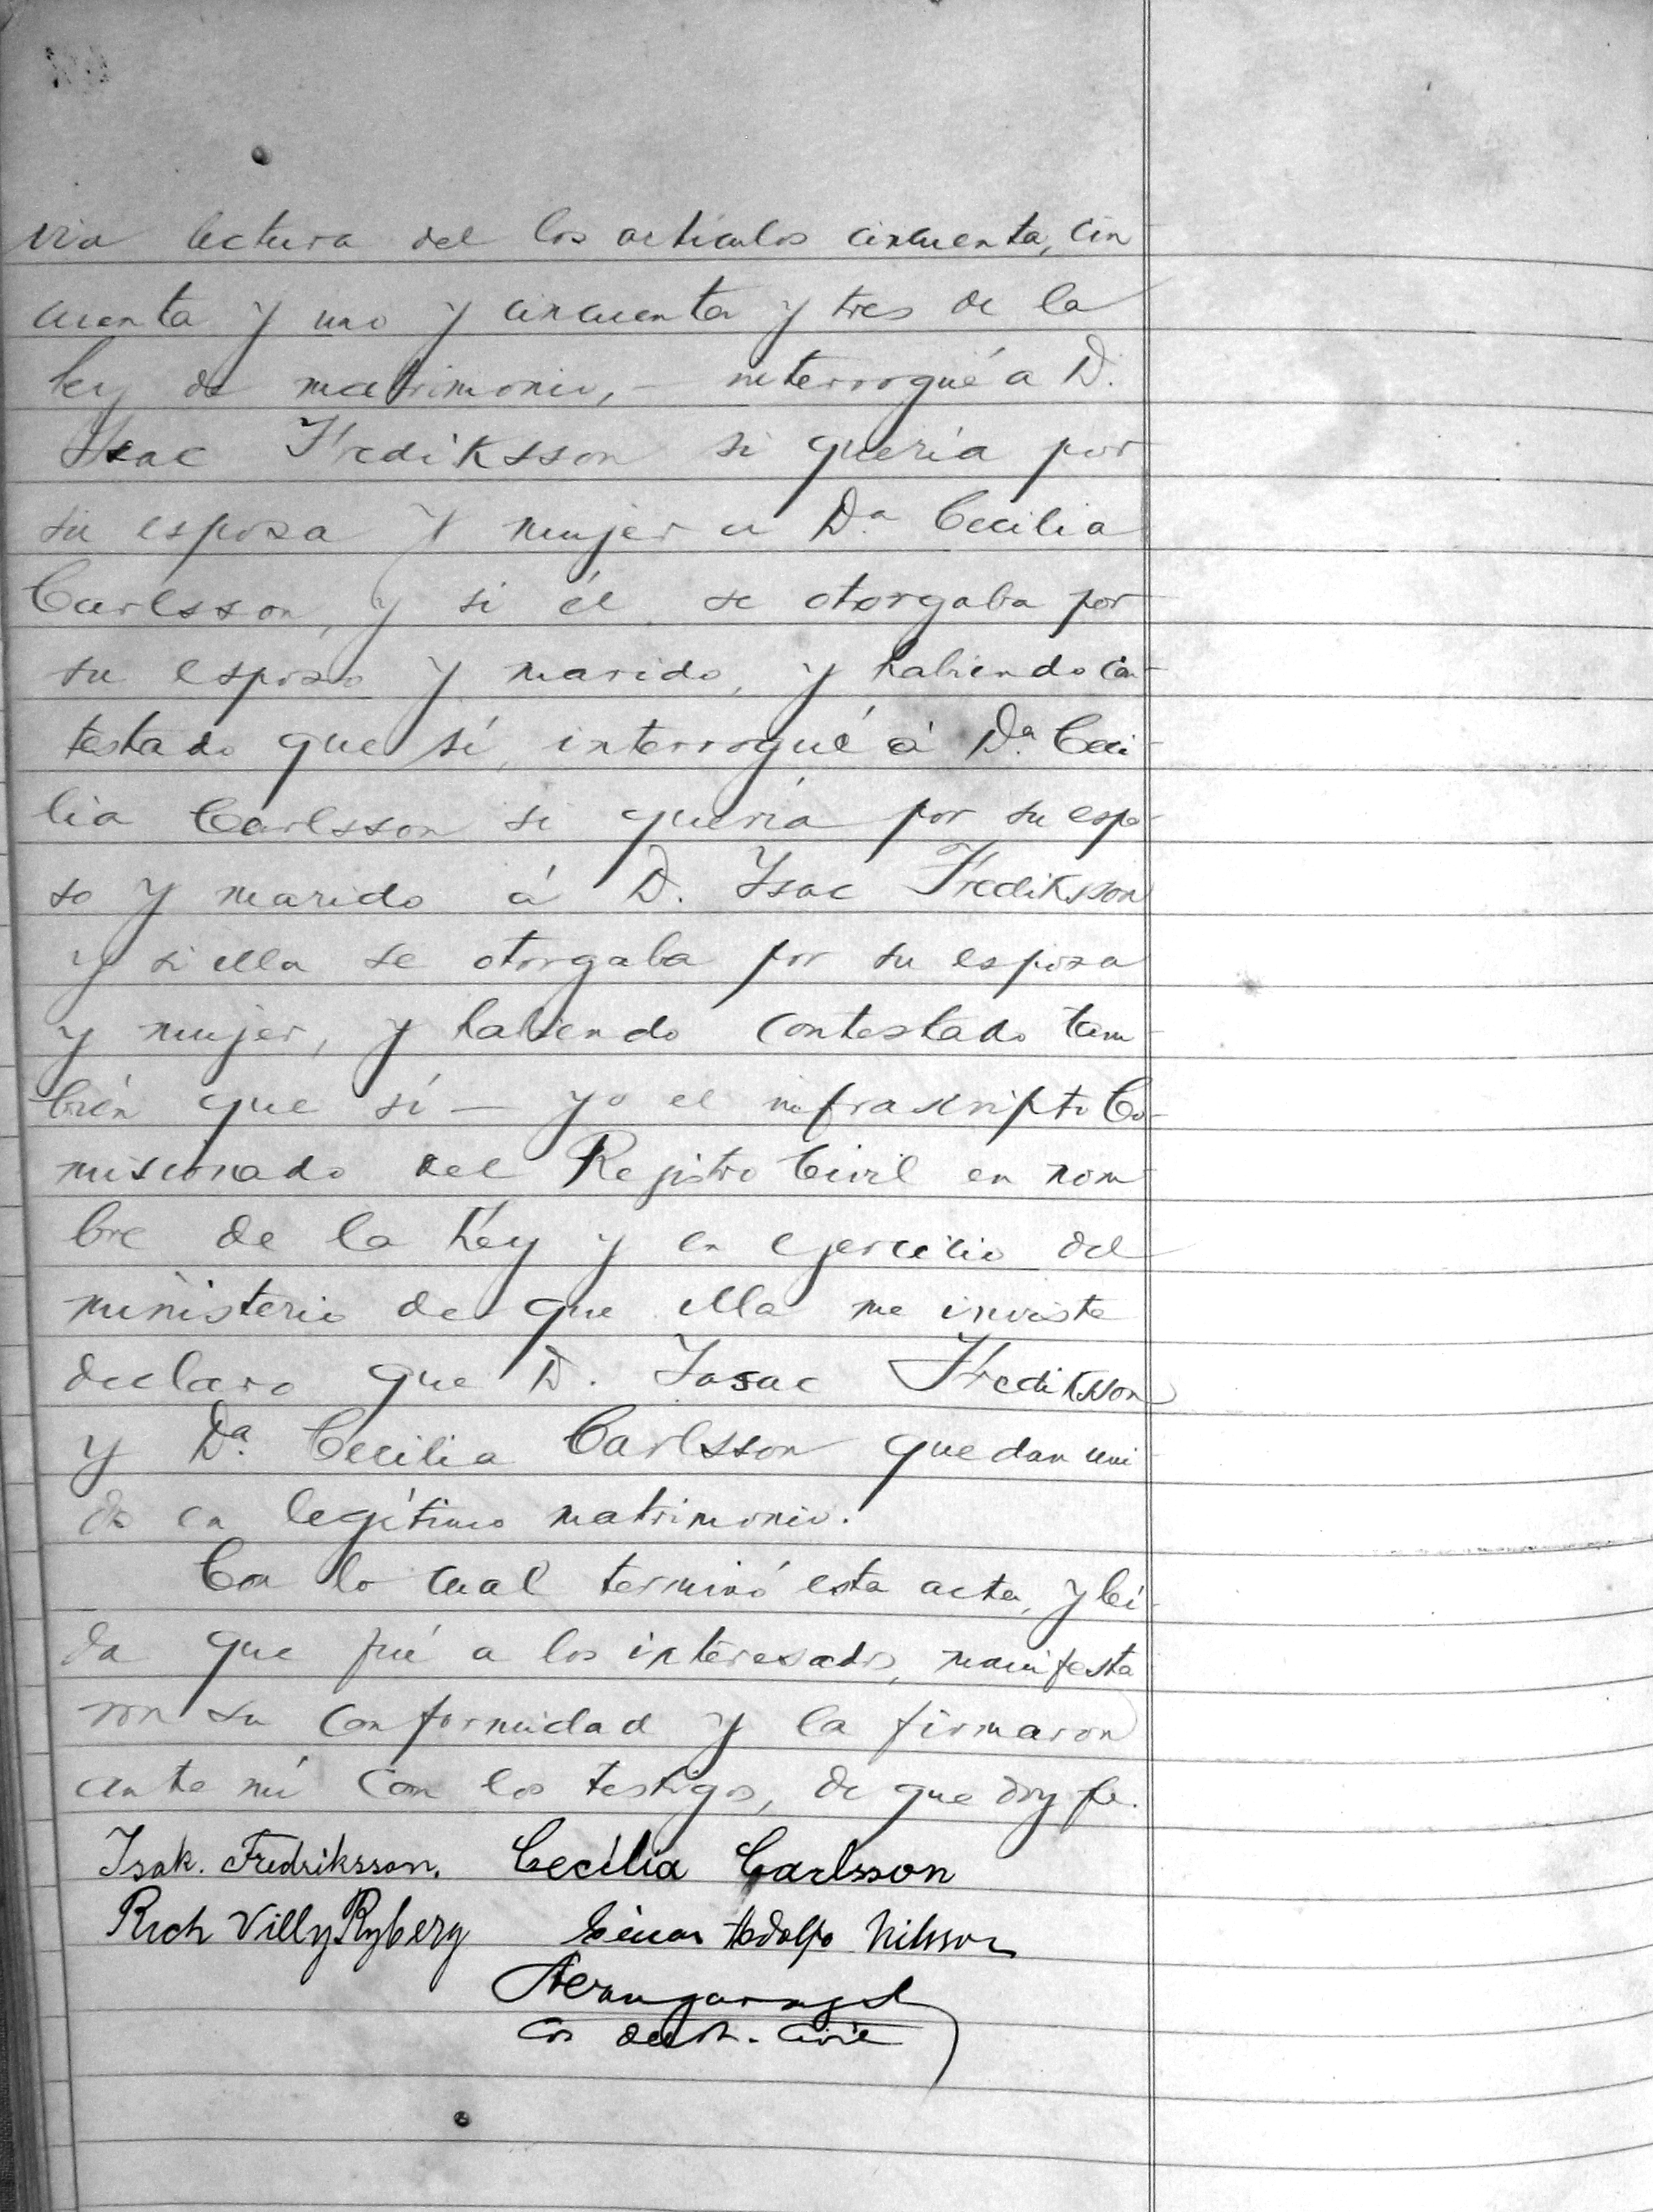 via lectura del los artículos cincuenta, cin
cuenta y uno y cincuenta y tres de la
ley de matrimonio, — interrogué a D.
Isac Frediksson si quería por
su esposa y mujer a Dª Cecilia
Carlsson, y si él se otorgaba por
su esposo y marido, y habiendo con-
testado que sí, interrogué á Dª Ceci-
lia Carlsson si quería por su espo-
so y marido á D. Isac Frediksson
y si ella se otorgaba por su esposa
y mujer, y habiendo contestado tam-
bién que sí — yo el infrascripto Co-
misionado del Registro Civil en nom
bre de la Ley y en ejercicio del
ministerio de que ella me inviste
declaro que D. Isac Frediksson
y Dª Cecilia Carlsson quedan uni
do en legítimo matrimonio.
Con lo cual terminó esta acta, y leí-
da que fué a los interesados, manifesta
ron su conformidad y la firmaron
ante mí con los testigos, de que doy fe.
Isak. Fredriksson. Cecilia Carlsson
Rich Villy Ryberg Adolfo Nilsson